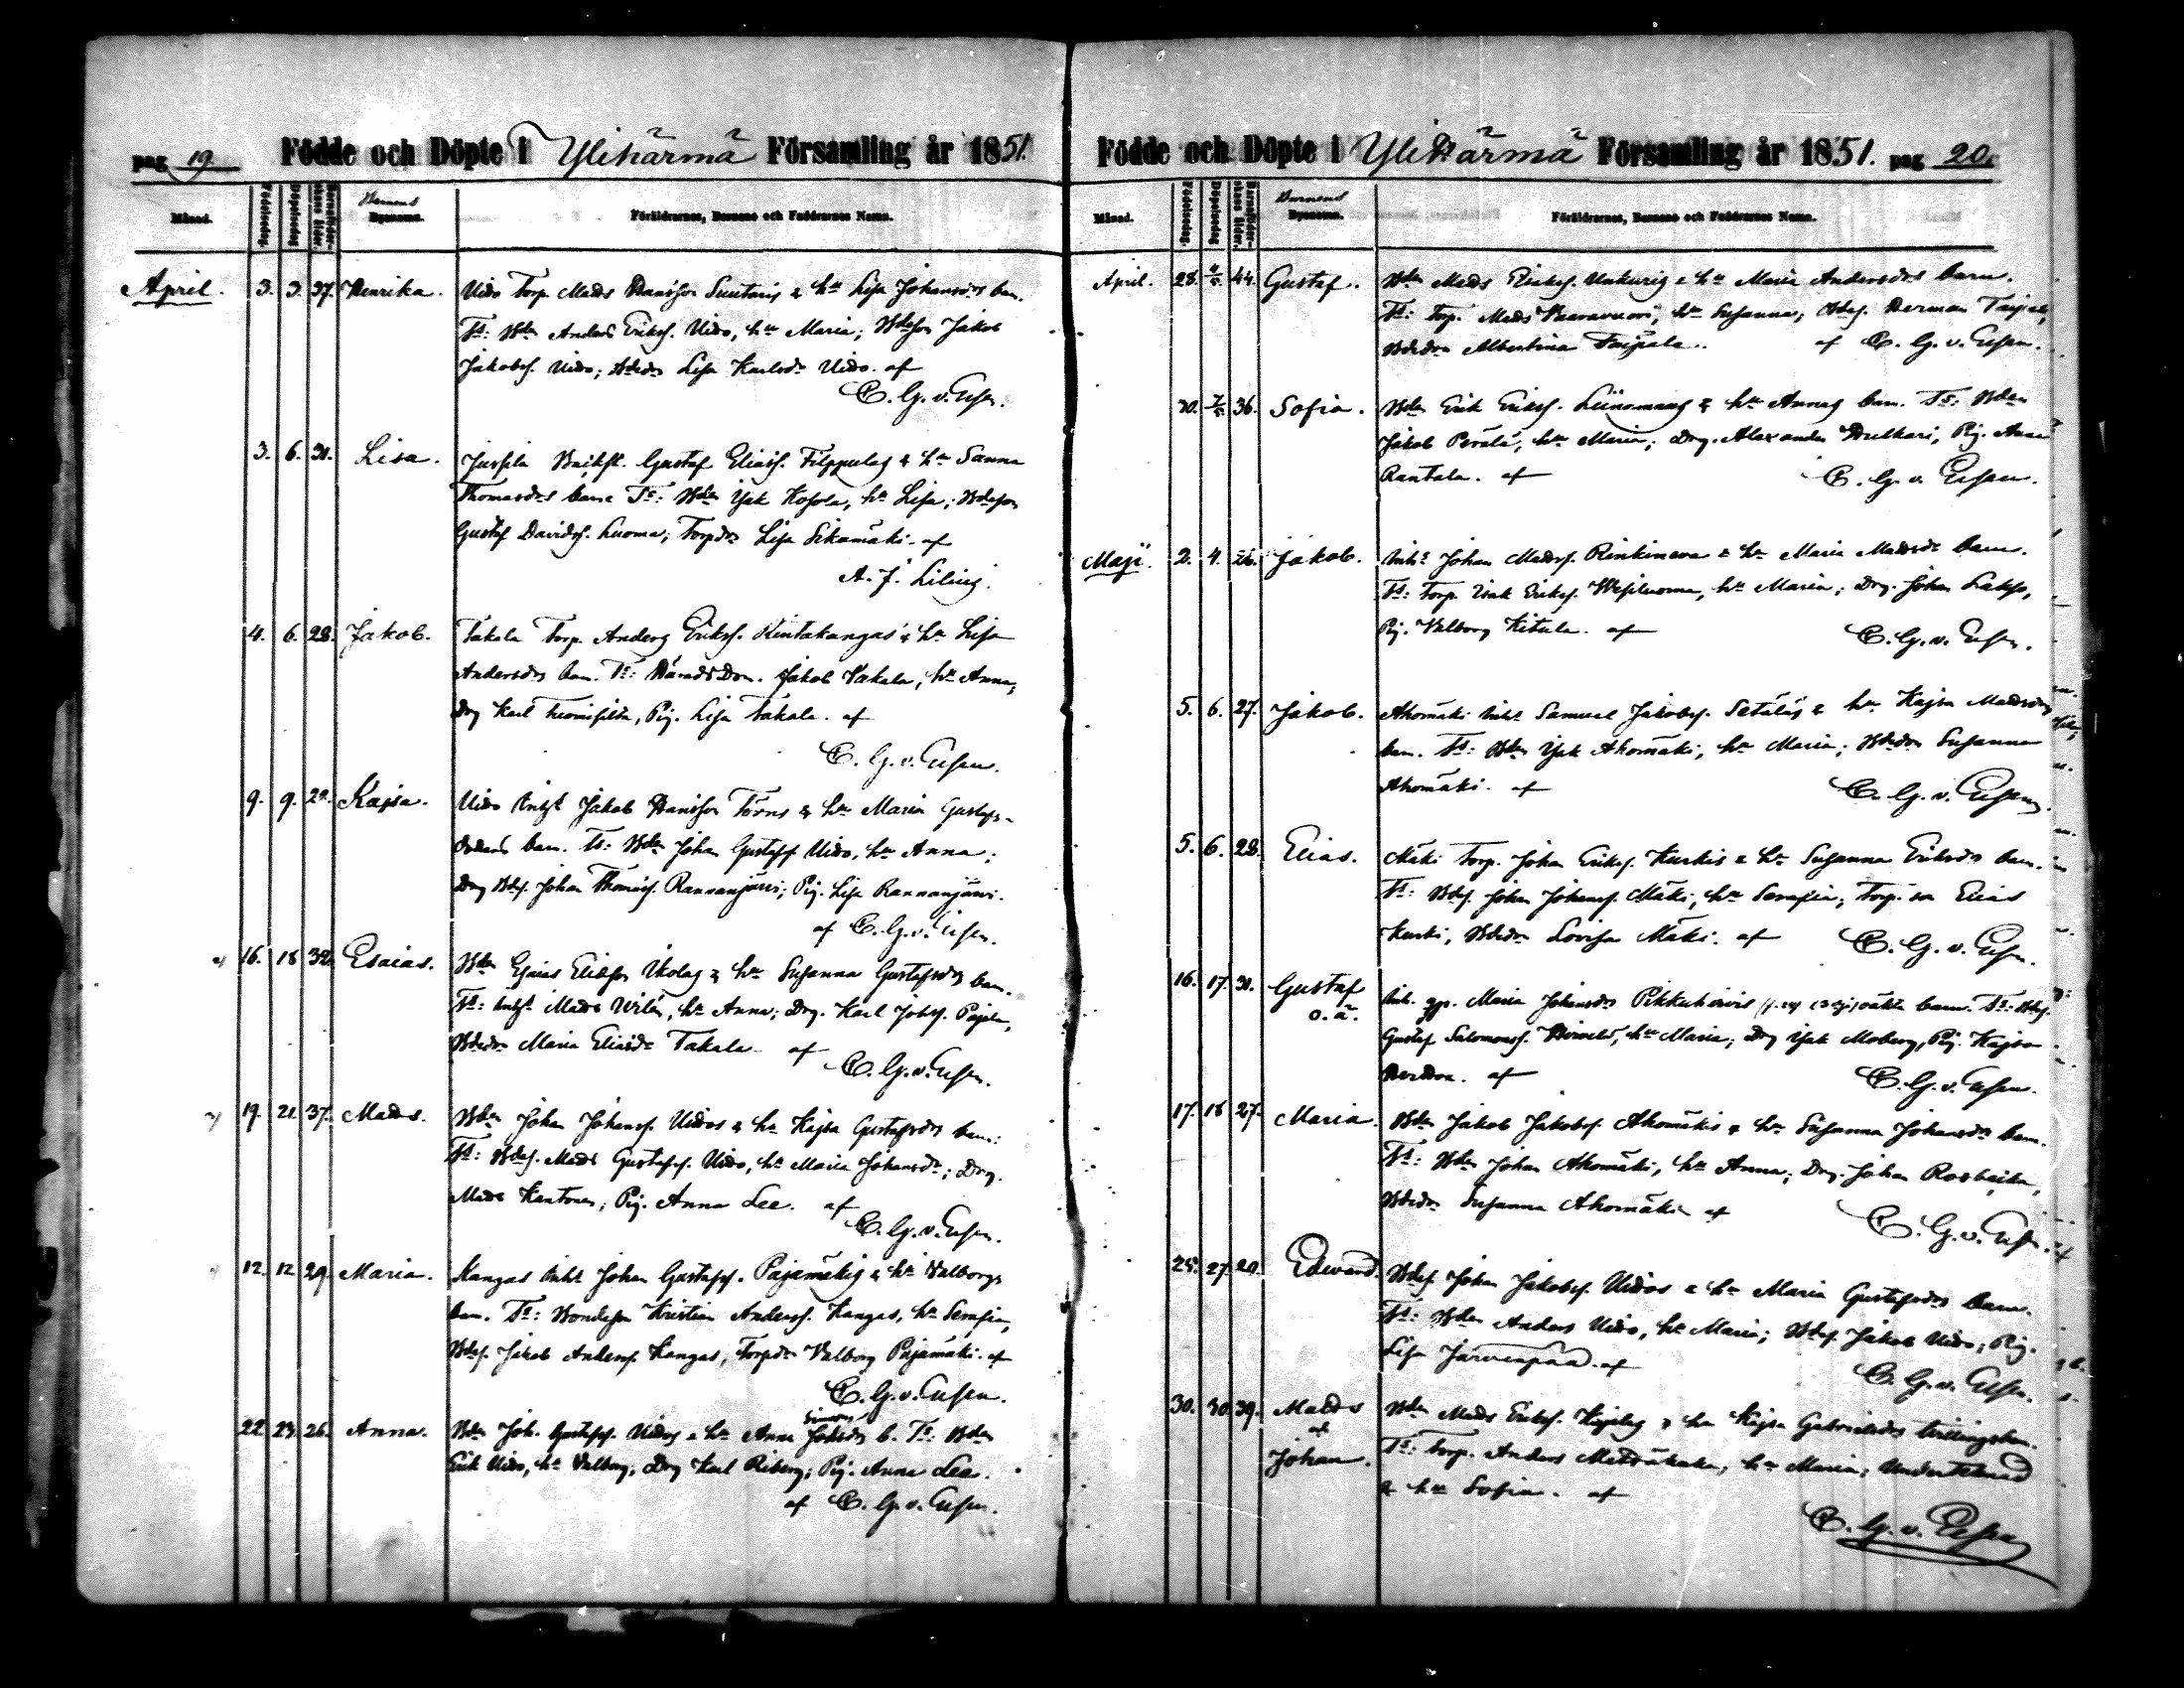 pag 19 Födde och Döpte i Ylihärmä Församling år 1851.
Månad. Födelsedag. Döpelsedag Barnaföderskans ålder Barnens Byanamn. Föräldrarnes, Barnens och Faddrarnes Namn.
April. 3. 3. 37. Henrika. Uido Torp. Mads Hansson & hu Lisa Johansdrs barn.
Ts: Bden Anders Erikss. Uido, hu Maria; Bdeson Jakob
Jakobss. Uido; Bdedr Lisa Karlsdr Uido. af
C. G. v. Essen.
3. 6. 31. Lisa. Jussila Gustaf Eliass. Filppulas & hu Sanna
Thomasdrs barn Ts: Bden Isak Kosola, hu Lisa; Bdeson
Gustaf Davidss. Luoma; Torpdr Lisa Sikamäki. af
A. J. Lilius.
4. 6. 28. Jakob. Takala Torp. Anders Erikss. Rintakangas & hu Lisa
Andersdrs barn. Ts: Jakob Takala, hu Anna,
Drg Karl Pig. Lisa Takala. af
C. G. v. Essen.
9. 9. 28. Kajsa. Uido Inhs Jakob Hansson Törns & hu Maria Gustafs-
dotters barn. Ts: Bden Johan Gustafss. Uido, hu Anna;
Drg Bdes. Johan Thomass. Rannanjärvi; Pig. Lisa Rannanjärvi.
af C. G. v. Essen.
16. 18 32. Esaias. Bden Esaias Eliasson Ikolas & hu Susanna Gustafsdrs barn.
Ts: Inhs Mads Wilén, hu Anna; Drg. Karl Johss. Pajula,
Bdedr Maria Eliasdr Takala. af
C. G. v. Essen.
19. 21. 37. Mads. Bden Johan Johanss. Uidos & hu Kajsa Gustafsdrs barn.
Ts: Bdes. Mads Gustafss. Uido, hu Maria Johansdr; Drg.
Mads Kantonen; Pig. Anna Lee. af
C. G. v. Essen.
12. 12 29. Maria. Kangas Inhs Johan Gustafss. Pajamäkis & hu Walborgs
barn. Ts: Bondeson Kristian Anderss. Kangas, hu Serafia,
Bdes. Jakob Anderss. Kangas, Torpdr Walborg Pajamäki. af
C. G. v. Essen.
Simons
22. 23. 26. Anna. Bden Joh. Gustafss. Uidos & hu Anna Johsdrs b. Ts: Bden
Erik Uido, hu Walborg, Drg Karl Riberg; Pig. Anna Lee.
af C. G. v. Essen.
Födde och Döpte i Ylihärmä Församling år 1851. pag 20.
Månad. Födelsedag. Döpelsedag Barnaföderskans ålder. Barnens Byanamn. Föräldrarnes, Barnens och Faddrarnes Namn.
April. 28. 4/5. 44. Gustaf. Bden Mads Erikss. & hu Maria Andersdrs barn.
Ts: Torp. Mads Vaaravuori, hu Susanna; Bdes. Herman Taipale,
Bdedr Albertina Taipale. af C. G. v. Essen.
30. 7/5 36. Sofia. Bden Erik Erikss. Liinamaas & hu Annas barn. Ts: Bden
Jakob Perälä, hu Maria; Drg. Alexander Pig. Anna
Rantala. af C. G. v. Essen.
Maji. 2. 4. 26. Jakob. Inhs Johan Madss. Rinkineva & hu Maria Madsdr barn.
Ts: Torp. Isak Erikss. Wesiluoma, hu Maria; Drg. Johan Lakso,
Pig. Walborg Kitula. af C. G. v. Essen.
5. 6. 27. Jakob. Ahomäki Inhs Samuel Jakobss. Setäläs & hu Kajsa Madsdrs
barn. Ts: Bden Isak Ahomäki, hu Maria; Bdedr Susanna
Ahomäki. af C. G. v. Essen.
5. 6. 28. Elias. Mäki Torp. Johan Erikss. Kurkis & hu Susanna Eriksdrs barn.
Ts: Bdes. Johan Johanss. Mäki, hu Serafia; Torp. son Elias
Kurki, Bdedr Lovisa Mäki. af C. G. v. Essen.
16. 17. 31. Gustaf Inh. Maria Johansdrs Pikkuhirvis oäkta barn. Ts: Bdes.
o. ä. Gustaf Salomonss. Hirvelä, hu Maria; Drg Isak Moberg, Pig. Kajsa
af C. G. v. Essen.
17. 18 27. Maria. Bden Jakob Jakobss. Ahomäkis & hu Susanna Johansdrs barn.
Ts: Bden Johan Ahomäki, hu Anna; Drg. Johan
Bdedr Susanna Ahomäki af C. G. v. Essen.
25. 27. 20. Edward. Bdes. Johan Jakobss. Uidos & hu Maria Gustafsdrs barn.
Ts: Bden Anders Uido, hu Maria; Bdes. Jakob Uido; Pig.
Lisa Järvenpää. af C. G. v. Essen.
30. 30. 39. Mads Bden Mads Erikss. & hu Kajsa Gabrielsdrs tvillingsbarn.
et Ts: Torp. Anders Metsäkala, hu Maria; Undertecknad
Johan. & hu Sofia. af
C. G. v. Essen